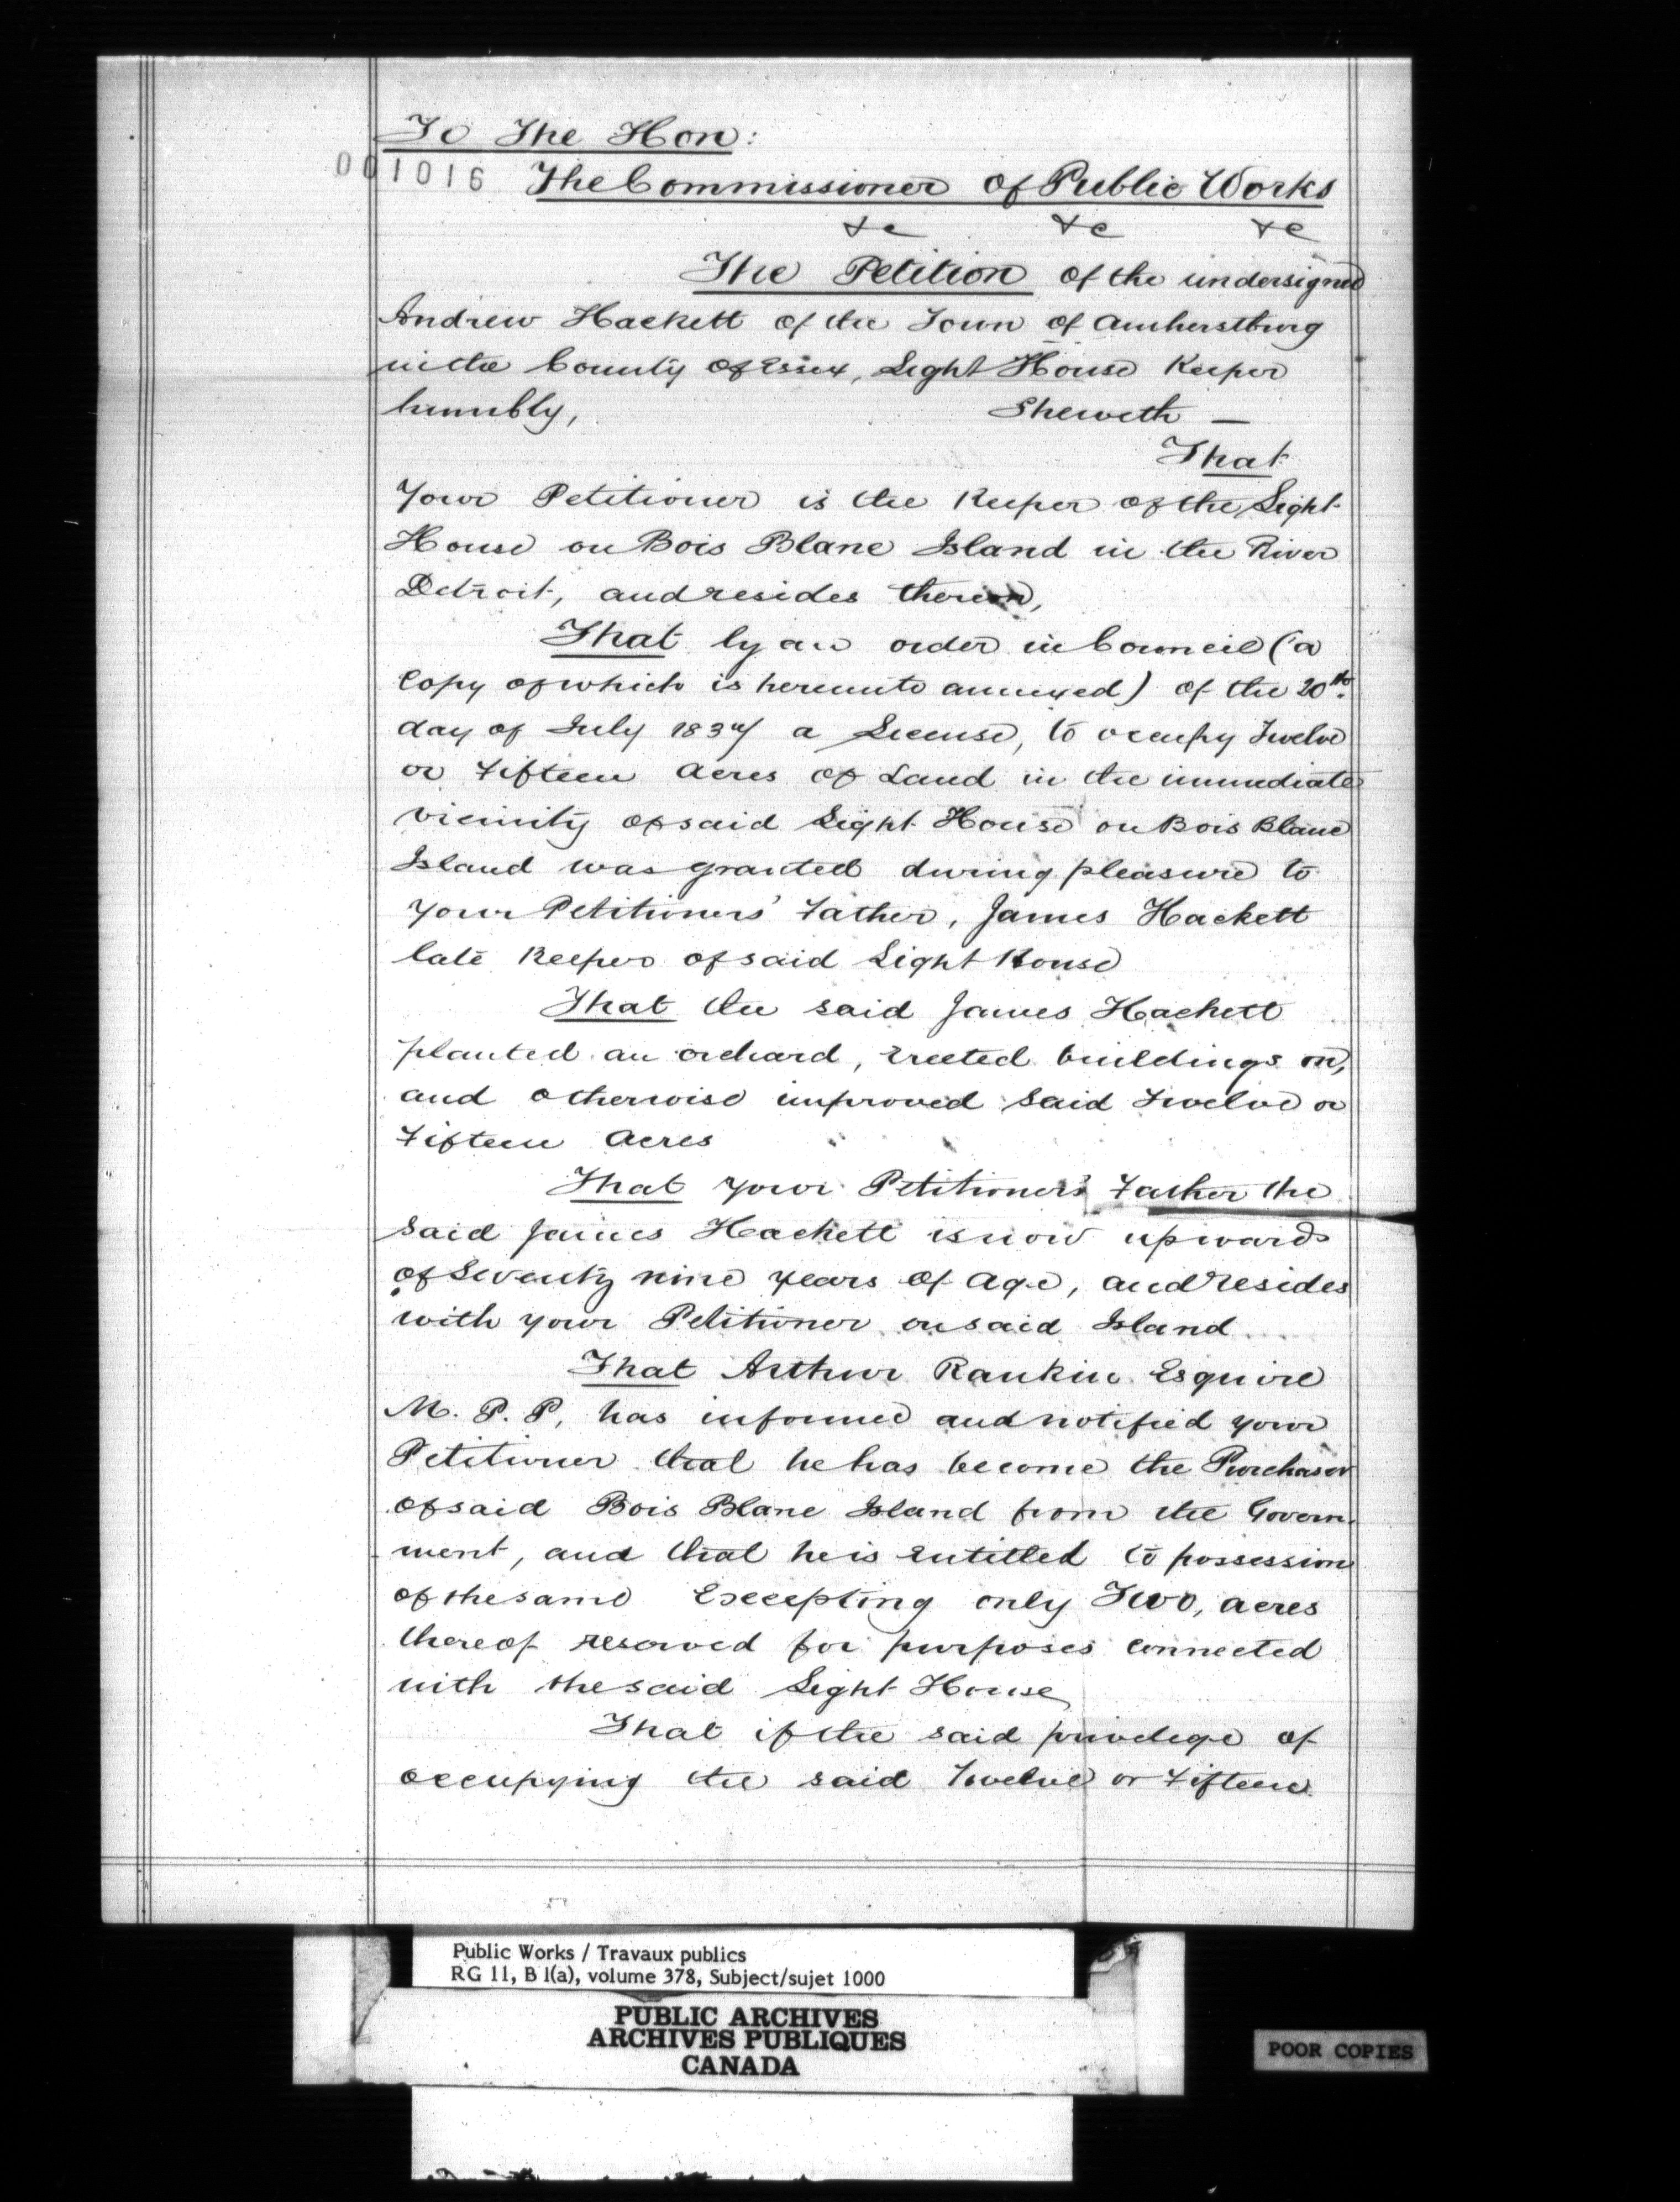 To The Hon:
001016 The Commissioner of Public Works
&c &c &c
The Petition of the undersigned
Andrew Hackett of the Town of Amherstburg
in the County of Essex, Light House Keeper
humbly, Sheweth —
That
Your Petitioner is the Keeper of the Light
House on Bois Blanc Island in the River
Detroit, and resides thereon,
That by an order in Council (a
Copy of which is hereunto annexed) of the 20th
day of July 1837 a License, to occupy Twelve
or Fifteen Acres of Land in the immediate
vicinity of said Light House on Bois Blanc
Island was granted during pleasure to
your Petitioners' Father, James Hackett
late Keeper of said Light House
That the said James Hackett
planted an orchard, erected buildings on,
and otherwise improved said Twelve or
Fifteen Acres
That your Petitioner's Father the
said James Hackett is now upwards
of Seventy nine years of age, and resides
with your Petitioner on said Island
That Arthur Rankin Esquire
M. P. P, has informed and notified your
Petitioner that he has become the Purchaser
of said Bois Blanc Island from the Govern-
ment, and that he is entitled to possession
of the same Excepting only Two, acres
thereof reserved for purposes connected
with the said Light House
That if the said privelege of
occupying the said Twelve or Fifteen
Public Works / Travaux publics
RG 11, B 1(a), volume 378, Subject/sujet 1000
PUBLIC ARCHIVES
ARCHIVES PUBLIQUES
CANADA
POOR COPIES